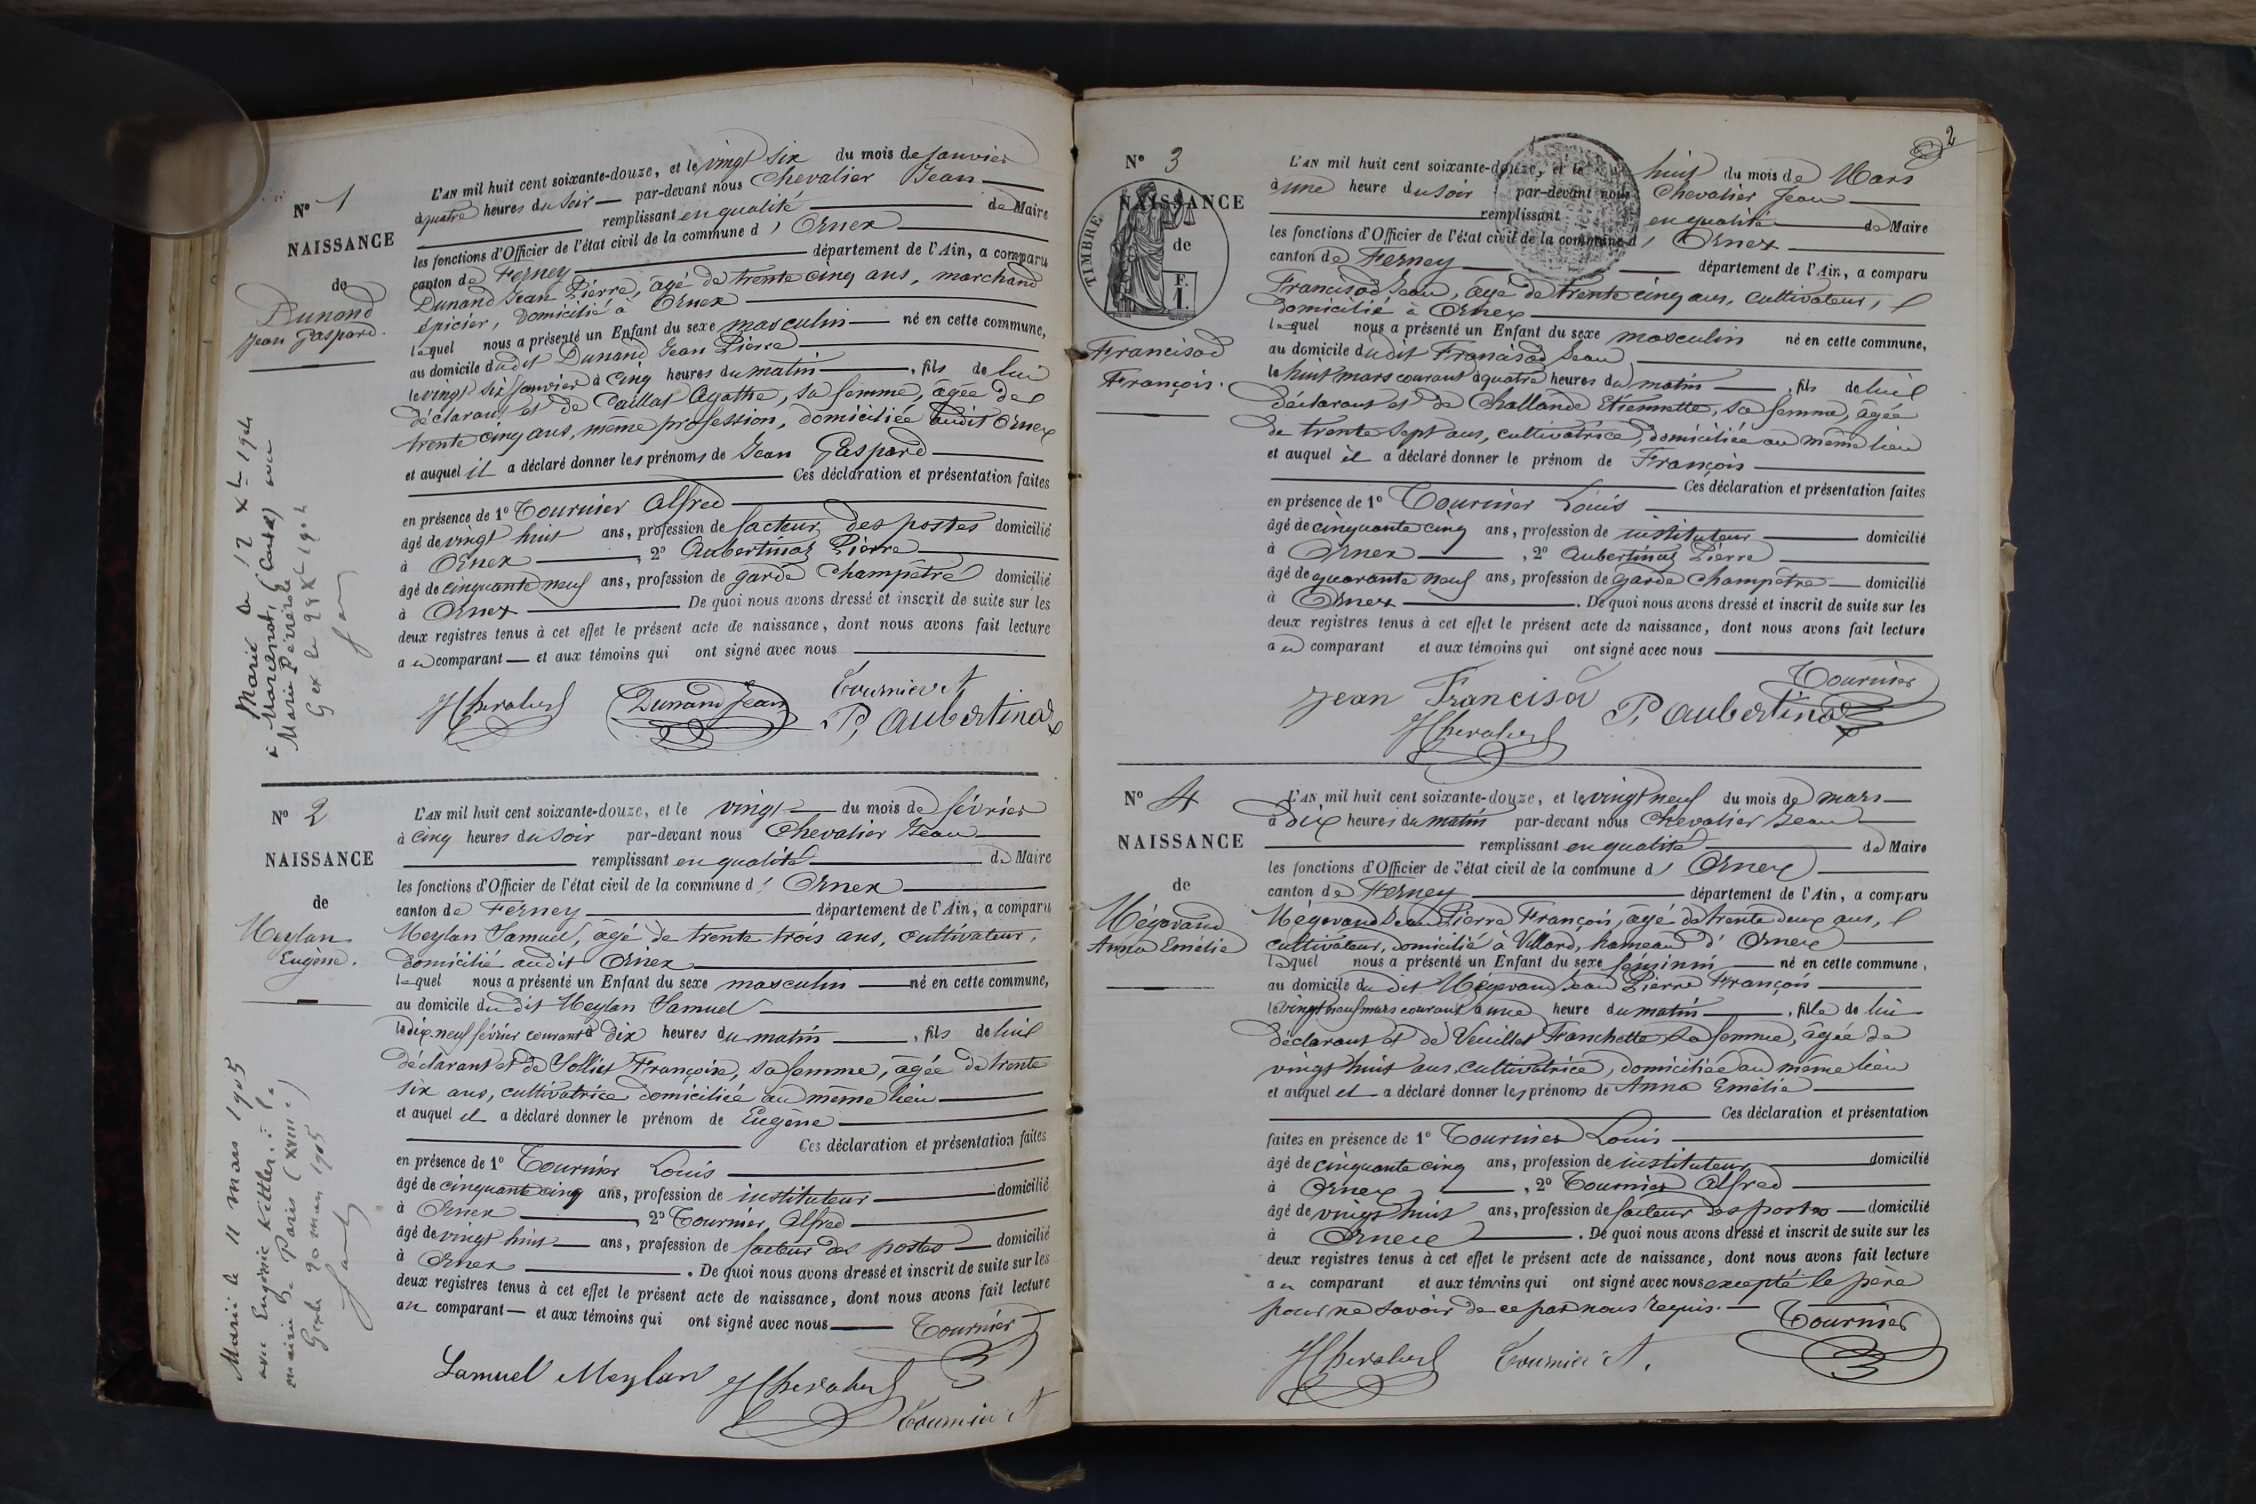 N° 1
NAISSANCE
de
Dunand
Jean Gaspard.
L'AN mil huit cent soixante-douze, et le vingt six du mois de janvier
à quatre heures du soir par-devant nous Chevalier Jean
remplissant en qualité de Maire
les fonctions d'Officier de l'état civil de la commune d' Ornex
canton de Ferney département de l'Ain, a comparu
Dunand Jean Pierre, âgé de trente cinq ans, marchand
épicier, domicilié à Ornex
lequel nous a présenté un Enfant du sexe masculin né en cette commune,
au domicile dudit Dunand Jean Pierre
le vingt six janvier à cinq heures du matin, fils de lui
déclarant et de Caillat Agathe, sa femme, âgée de
trente cinq ans, même profession, domiciliée audit Ornex
et auquel il a déclaré donner les prénoms de Jean Gaspard
Ces déclaration et présentation faites
en présence de 1° Tournier Alfred
âgé de vingt huit ans, profession de facteur des postes domicilié
à Ornex, 2° Aubertinaz Pierre
âgé de cinquante neuf ans, profession de garde champêtre domicilié
à Ornex De quoi nous avons dressé et inscrit de suite sur les
deux registres tenus à cet effet le présent acte de naissance, dont nous avons fait lecture
au comparant et aux témoins qui ont signé avec nous
JChevalier Dunand Jean Tournier A
P. Aubertinaz
Marié le 12 Xbre 1904
à avec
Marie
Gex le Xbre 1904
N° 2
NAISSANCE
de
Meylan
Eugène.
L'AN mil huit cent soixante-douze, et le vingt du mois de février
à cinq heures du soir par-devant nous Chevalier Jean
remplissant en qualité de Maire
les fonctions d'Officier de l'état civil de la commune d' Ornex
canton de Ferney département de l'Ain, a comparu
Meylan Samuel, âgé de trente trois ans, cultivateur,
domicilié audit Ornex
lequel nous a présenté un Enfant du sexe masculin né en cette commune,
au domicile dudit Meylan Samuel
le dix-neuf février courant à dix heures du matin, fils de lui
déclarant et de Solliet Françoise, sa femme, âgée de trente
six ans, cultivatrice domiciliée au même lieu
et auquel il a déclaré donner le prénom de Eugène
Ces déclaration et présentation faites
en présence de 1° Tournier Louis
âgé de cinquante cinq ans, profession de instituteur domicilié
à Ornex, 2° Tournier Alfred
âgé de vingt huit ans, profession de facteur des postes domicilié
à Ornex. De quoi nous avons dressé et inscrit de suite sur les
deux registres tenus à cet effet le présent acte de naissance, dont nous avons fait lecture
au comparant et aux témoins qui ont signé avec nous
Tournier
Samuel Meylan JChevalier
Tournier A
Marié le 11 mars 1905
avec Eugénie Kittler: à la
mairie de Paris (XVIIIe)
Gex le 20 mars 1905
2
N° 3
NAISSANCE
de
TIMBRE
F.
1.
Francisod
François.
L'AN mil huit cent soixante-douze, et le huit du mois de Mars
à une heure du soir par-devant nous Chevalier Jean
remplissant en qualité de Maire
les fonctions d'Officier de l'état civil de la commune d' Ornex
canton de Ferney département de l'Ain, a comparu
Francisod Jean, âgé de trente cinq ans, cultivateur,
domicilié à Ornex
lequel nous a présenté un Enfant du sexe masculin né en cette commune,
au domicile dudit Francisod Jean
le huit mars courant à quatre heures du matin, fils de lui
déclarant et de Challande Etiennette, sa femme, âgée
de trente sept ans, cultivatrice, domiciliée au même lieu
et auquel il a déclaré donner le prénom de François
Ces déclaration et présentation faites
en présence de 1° Tournier Louis
âgé de cinquante cinq ans, profession de instituteur domicilié
à Ornex, 2° Aubertinaz Pierre
âgé de quarante neuf ans, profession de garde champêtre domicilié
à Ornex. De quoi nous avons dressé et inscrit de suite sur les
deux registres tenus à cet effet le présent acte de naissance, dont nous avons fait lecture
au comparant et aux témoins qui ont signé avec nous
Tournier
Jean Francisod P. Aubertinaz
JChevalier
N° 4
NAISSANCE
de
Mégevand
Anna Emélie
L'AN mil huit cent soixante-douze, et le vingt neuf du mois de mars
à dix heures du matin par-devant nous Chevalier Jean
remplissant en qualité de Maire
les fonctions d'Officier de l'état civil de la commune d' Ornex
canton de Ferney département de l'Ain, a comparu
Mégevand Jean Pierre François, âgé de trente deux ans,
cultivateur, domicilié à Villard, hameau d' Ornex
lequel nous a présenté un Enfant du sexe féminin né en cette commune,
au domicile dudit Mégevand Jean Pierre François
le vingt neuf mars courant à une heure du matin, fille de lui
déclarant et de Veuillet Franchette sa femme, âgée de
vingt huit ans cultivatrice, domiciliée au même lieu
et auquel il a déclaré donner les prénoms de Anna Emélie
Ces déclaration et présentation
faites en présence de 1° Tournier Louis
âgé de cinquante cinq ans, profession de instituteur domicilié
à Ornex, 2° Tournier Alfred
âgé de vingt huit ans, profession de facteur des postes domicilié
à Ornex. De quoi nous avons dressé et inscrit de suite sur les
deux registres tenus à cet effet le présent acte de naissance, dont nous avons fait lecture
au comparant et aux témoins qui ont signé avec nous excepté le père
pour ne savoir de ce par nous requis. Tournier
JChevalier Tournier A.